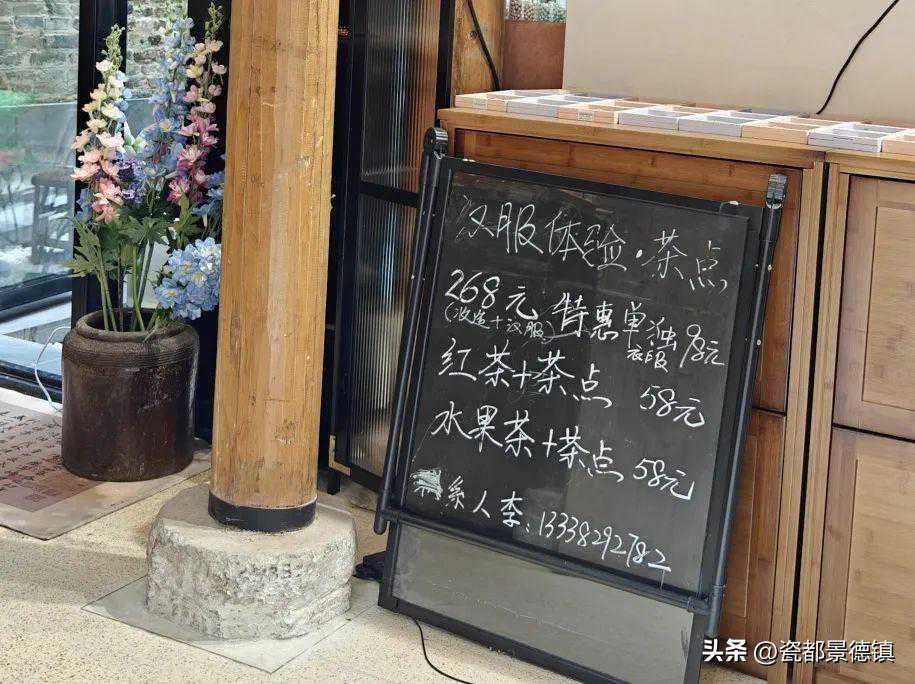 汉服体验·茶点
268元 特惠单独 98元
(妆造+汉服) 衣服
红茶+茶点 58元
水果茶+茶点 58元
系人李:13338292782
头条 @瓷都景德镇